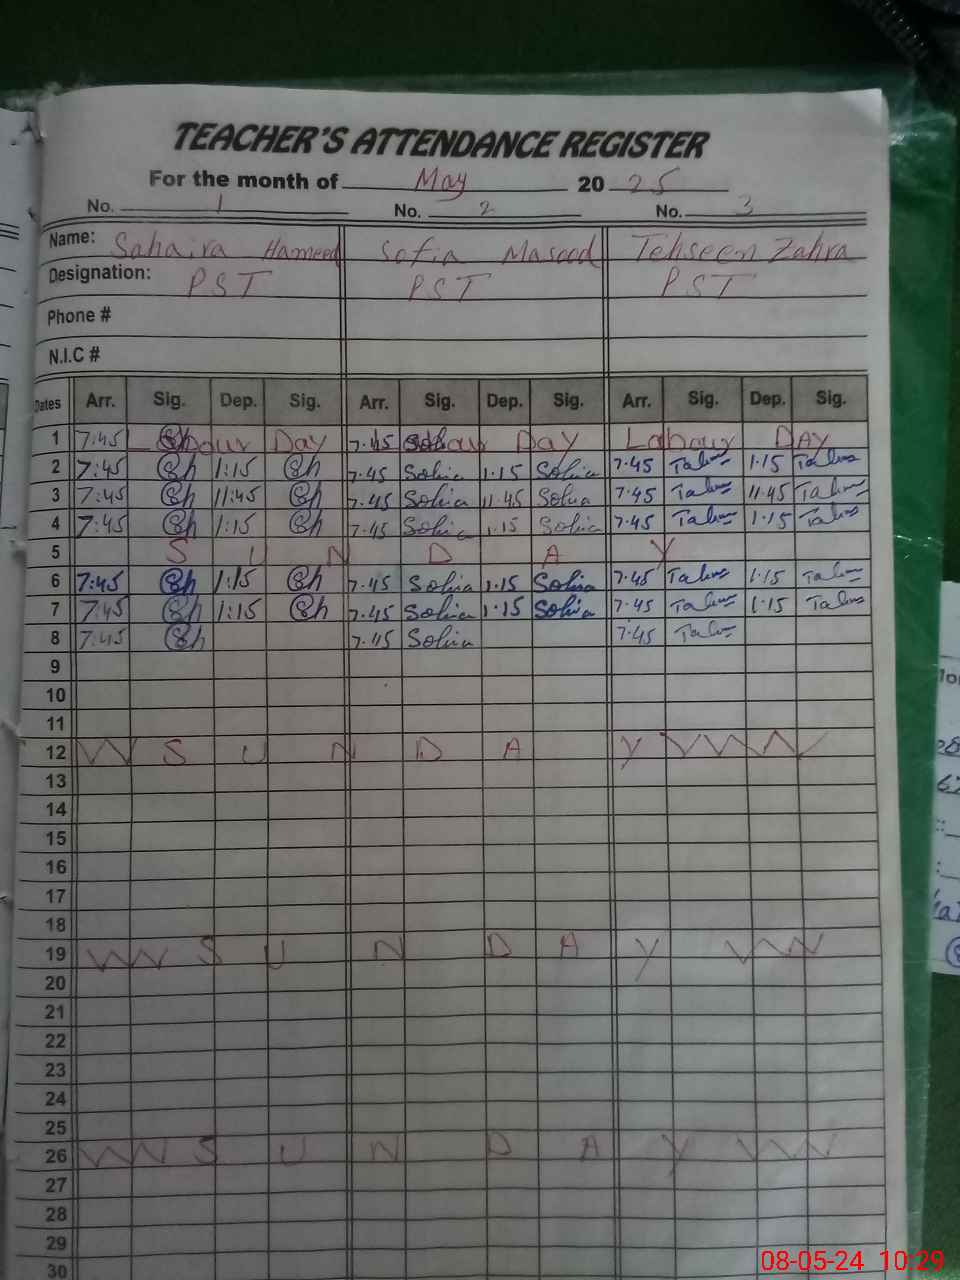 TEACHER'S ATTENDANCE REGISTER
For the month of May 20 25
No. 1 No. 2 No. 3
Name: Sahaira Hameed Sofia Masood Tehseen Zahra
Designation: PST PST PST
Phone #
N.I.C #
Dates Arr. Sig. Dep. Sig. Arr. Sig. Dep. Sig. Arr. Sig. Dep. Sig.
1 7:45 Labour Day 7.45 Day Labour DAY
2 7:45 Sh 1:15 Sh 7.45 Sofia 1.15 Sofia 7.45 1.15
3 7:45 Sh 11:45 Sh 7.45 Sofia 11.45 Sofia 7.45 11.45
4 7:45 Sh 1:15 Sh 7.45 Sofia 1.15 Sofia 7.45 1.15
5 S U N D A Y
6 7:45 Sh 1:15 Sh 7.45 Sofia 1.15 Sofia 7.45 1.15
7 7:45 Sh 1:15 Sh 7.45 Sofia 1.15 Sofia 7.45 1.15
8 7:45 Sh 7.45 Sofia 7.45
9
10
11
12 S U N D A Y
13
14
15
16
17
18
19 S U N D A Y
20
21
22
23
24
25
26 S U N D A Y
27
28
29
30
08-05-24 10:29